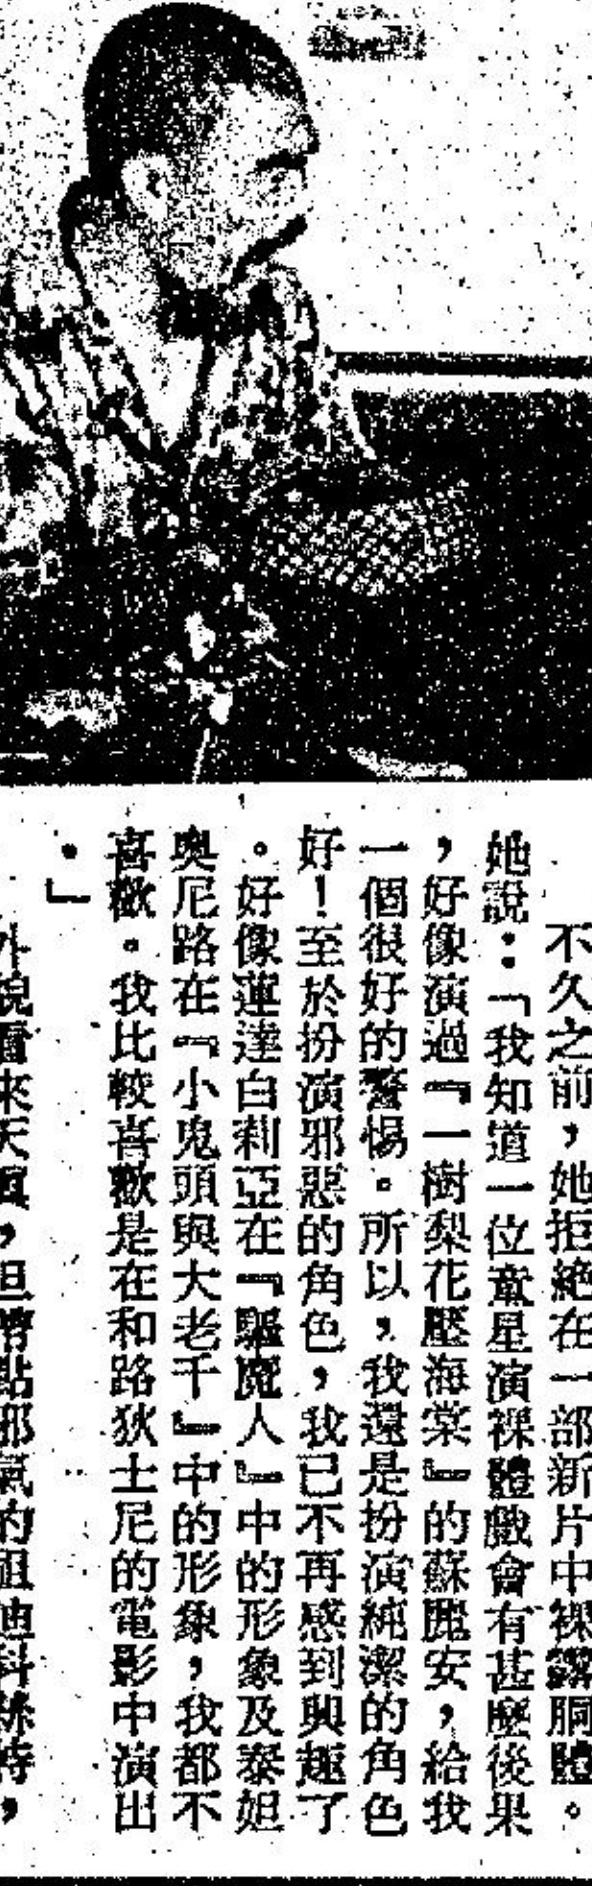 不久之前，她拒絕在一部新片中裸露胴體。
她說：「我知道一位童星演裸體戲會有甚麼後果
，好像演過『一樹梨花壓海棠』的蘇麗安，給我
一個很好的警惕。所以，我還是扮演純潔的角色
好！至於扮演邪惡的角色，我已不再感到興趣了
。好像蓮達白莉亞在『驅魔人』中的形象及泰妲
奧尼路在『小鬼頭與大老千』中的形象，我都不
喜歡。我比較喜歡是在和路狄士尼的電影中演出
。」
外貌看來天真，但帶點邪氣的祖迪科絲特，